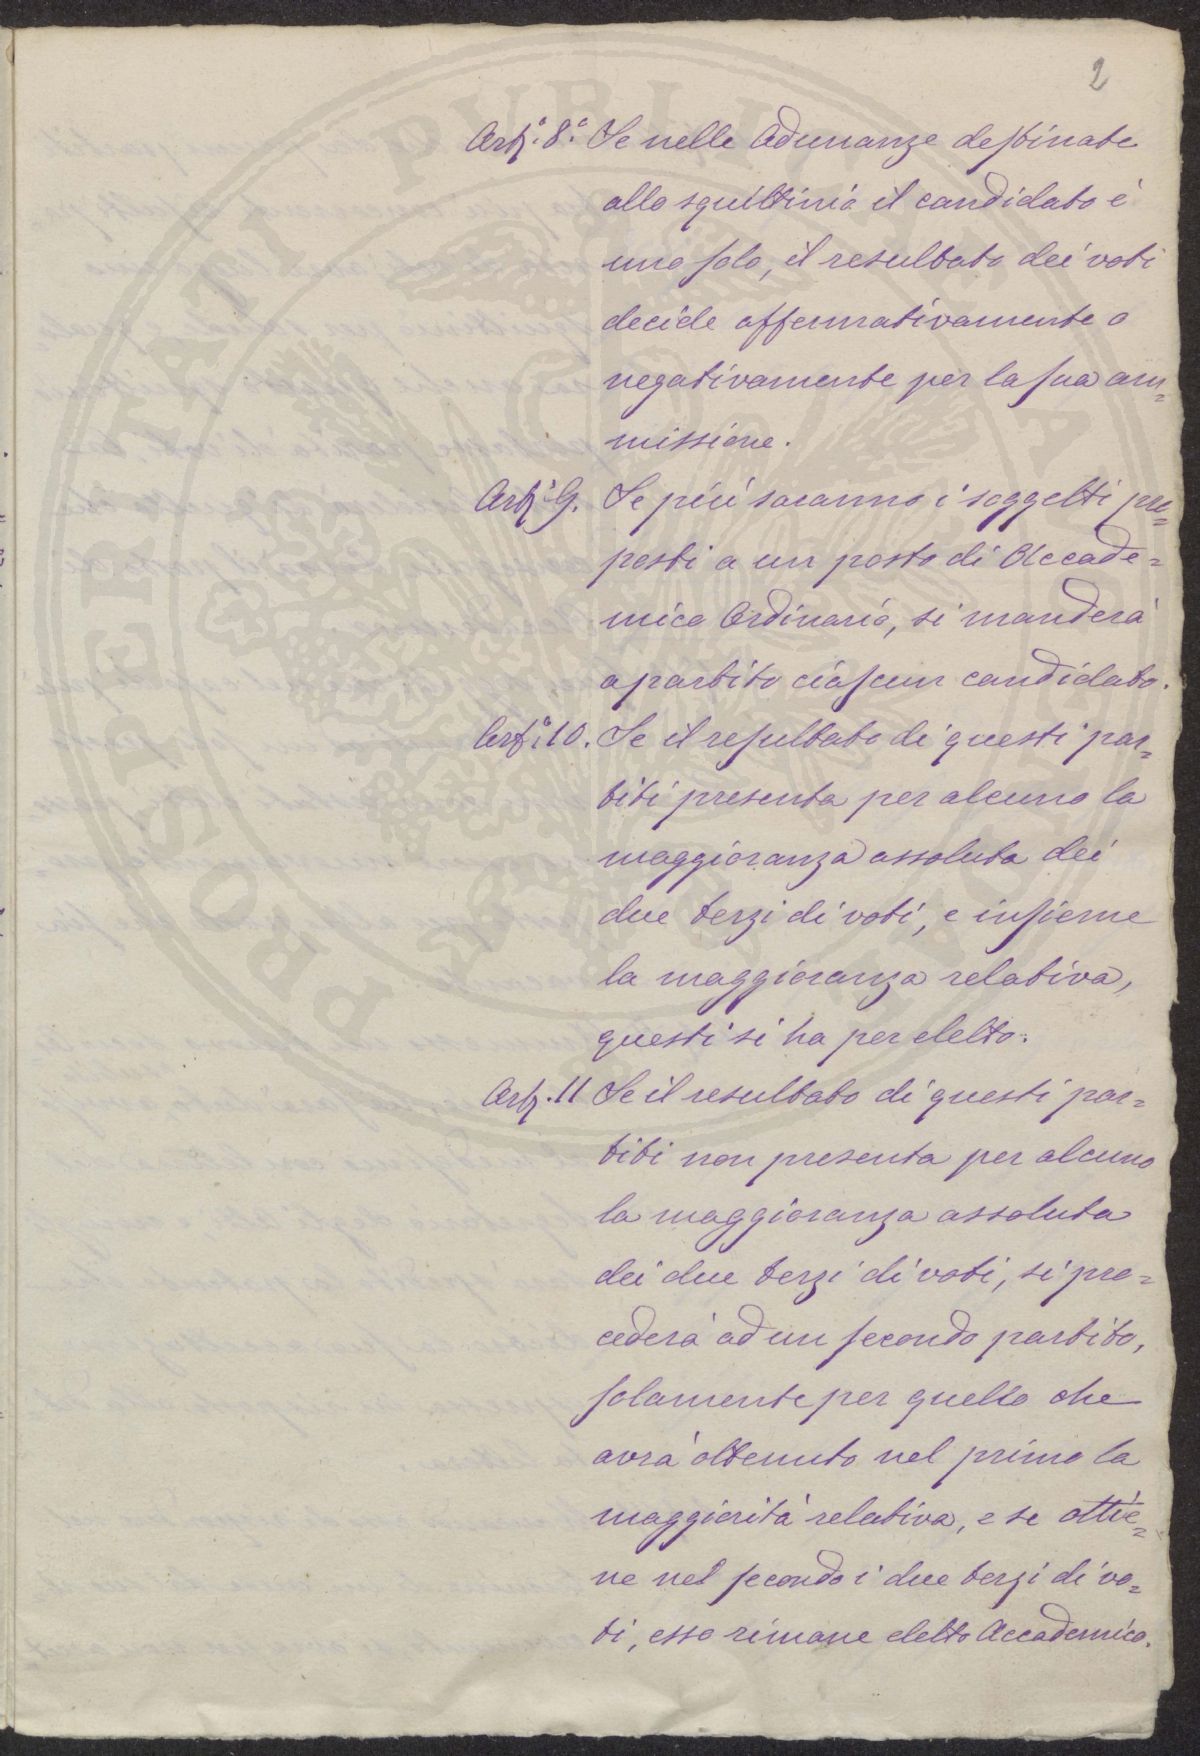 2
Art.° 8.° Se nelle Adunanze destinate
allo squittinio il candidato è
uno solo, il resultato dei voti
decide affermativamente o
negativamente per la sua am=
missione.
Art.° 9. Se più saranno i soggetti pro=
posti a un posto di Accade=
mico Ordinario, si manderà
a partito ciascun candidato.
Art.° 10. Se il resultato di questi par=
titi presenta per alcuno la
maggioranza assoluta dei
due terzi di voti, e insieme
la maggioranza relativa,
questi si ha per eletto.
Art. 11 Se il resultato di questi par=
titi non presenta per alcuno
la maggioranza assoluta
dei due terzi di voti, si pro=
cederà ad un secondo partito,
solamente per quello che
avrà ottenuto nel primo la
maggiorità relativa, e se ottie=
ne nel secondo i due terzi di vo=
ti, esso rimane eletto Accademico.
PROSPERITATI PUBLICAE AUGENDAE